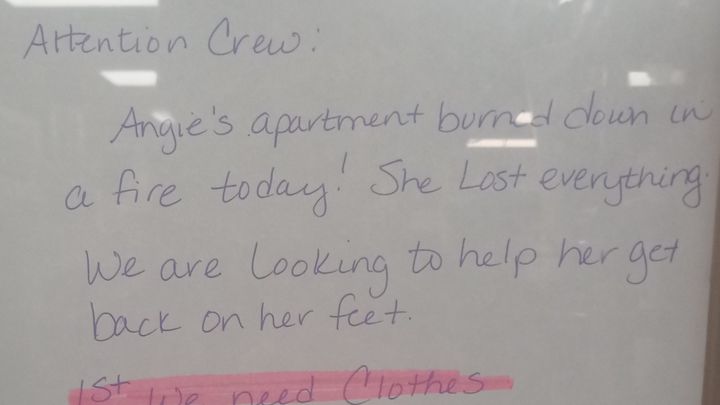 Attention Crew:
Angie's apartment burned down in
a fire today! She Lost everything.
We are Looking to help her get
back on her feet.
1st We need Clothes